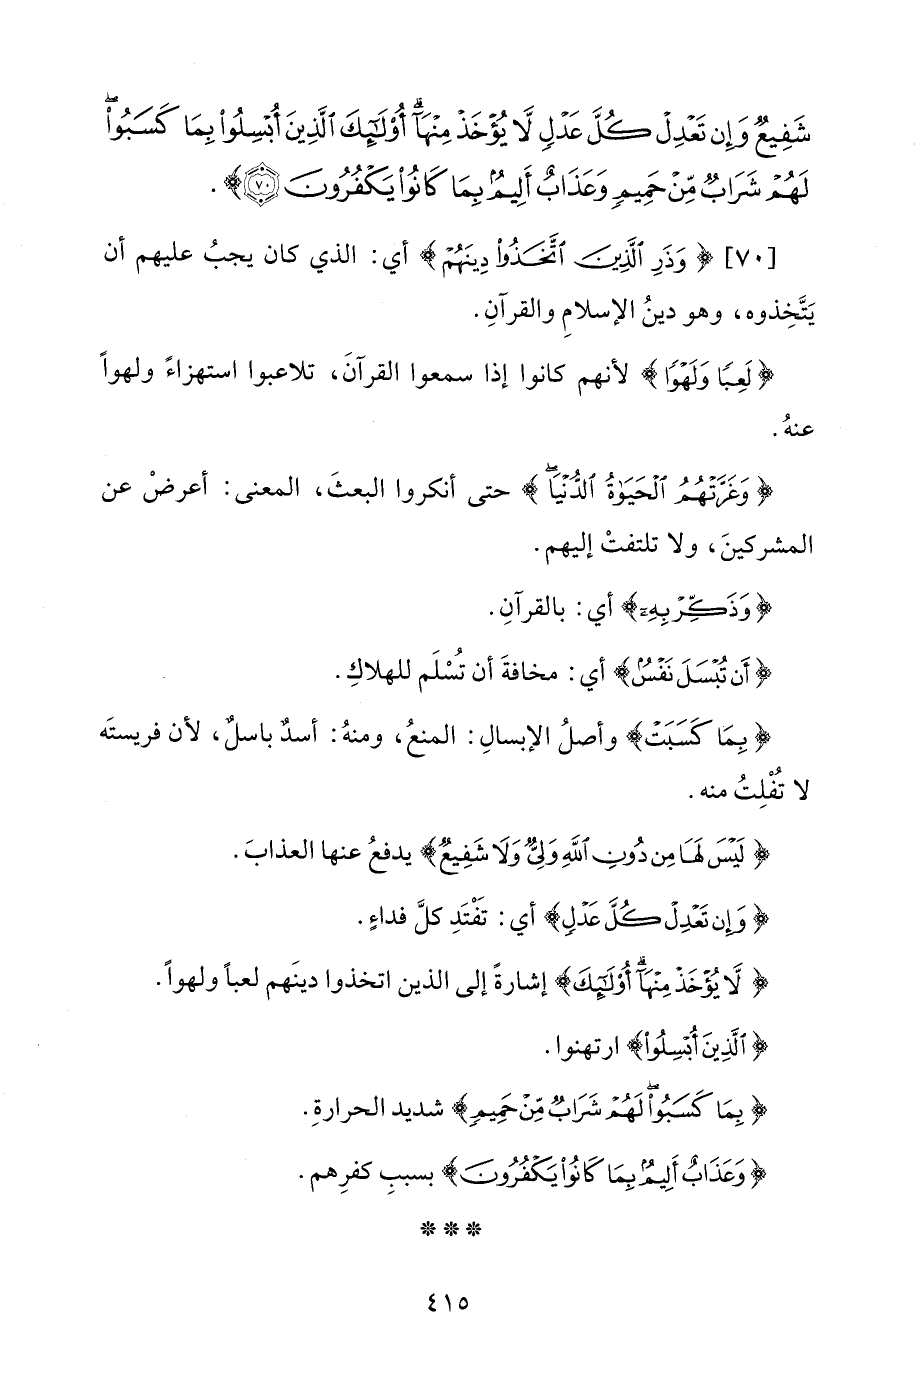 شَفِيعٌ وَإِن تَعْدِلْ كُلَّ عَدْلٍ لَّا يُؤْخَذْ مِنْهَآ ۗ أُوْلَـٰٓئِكَ ٱلَّذِينَ أُبْسِلُواْ بِمَا كَسَبُواْ ۖ
لَهُمْ شَرَابٌ مِّنْ حَمِيمٍ وَعَذَابٌ أَلِيمٌۢ بِمَا كَانُواْ يَكْفُرُونَ ﴿٧٠﴾﴾.
[٧٠] ﴿وَذَرِ ٱلَّذِينَ ٱتَّخَذُواْ دِينَهُمْ﴾ أي: الذي كان يجبُ عليهم أن
يَتَّخِذوه، وهو دينُ الإسلامِ والقرآنِ.
﴿لَعِبًا وَلَهْوًا﴾ لأنهم كانوا إذا سمعوا القرآنَ، تلاعبوا استهزاءً ولهواً
عنهُ.
﴿وَغَرَّتْهُمُ ٱلْحَيَوٰةُ ٱلدُّنْيَا ۚ﴾ حتى أنكروا البعثَ، المعنى: أعرضْ عن
المشركينَ، ولا تلتفتْ إليهم.
﴿وَذَكِّرْ بِهِۦٓ﴾ أي: بالقرآنِ.
﴿أَن تُبْسَلَ نَفْسٌۢ﴾ أي: مخافةَ أن تُسْلَم للهلاكِ.
﴿بِمَا كَسَبَتْ﴾ وأصلُ الإبسالِ: المنعُ، ومنهُ: أسدٌ باسلٌ، لأن فريستَه
لا تُفْلِتُ منه.
﴿لَيْسَ لَهَا مِن دُونِ ٱللَّهِ وَلِىٌّ وَلَا شَفِيعٌ﴾ يدفعُ عنها العذابَ.
﴿وَإِن تَعْدِلْ كُلَّ عَدْلٍ﴾ أي: تَفْتَدِ كلَّ فداءٍ.
﴿لَّا يُؤْخَذْ مِنْهَآ ۗ أُوْلَـٰٓئِكَ﴾ إشارةً إلى الذين اتخذوا دينَهم لعباً ولهواً.
﴿ٱلَّذِينَ أُبْسِلُواْ﴾ ارتهنوا.
﴿بِمَا كَسَبُواْ ۖ لَهُمْ شَرَابٌ مِّنْ حَمِيمٍ﴾ شديد الحرارةِ.
﴿وَعَذَابٌ أَلِيمٌۢ بِمَا كَانُواْ يَكْفُرُونَ﴾ بسببِ كفرِهم.
***
٤١٥